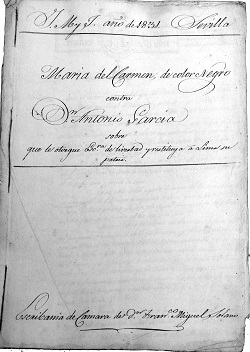 J. M. y J. año de 1831 Sevilla
Maria del Carmen, de color Negro
contra
Dn. Antonio Garcia
sobre
que le otorgue Escra. de libertad y restituya à Lima su
patria.
Escribania de Camara de Dn. Franco. Miguel Solano